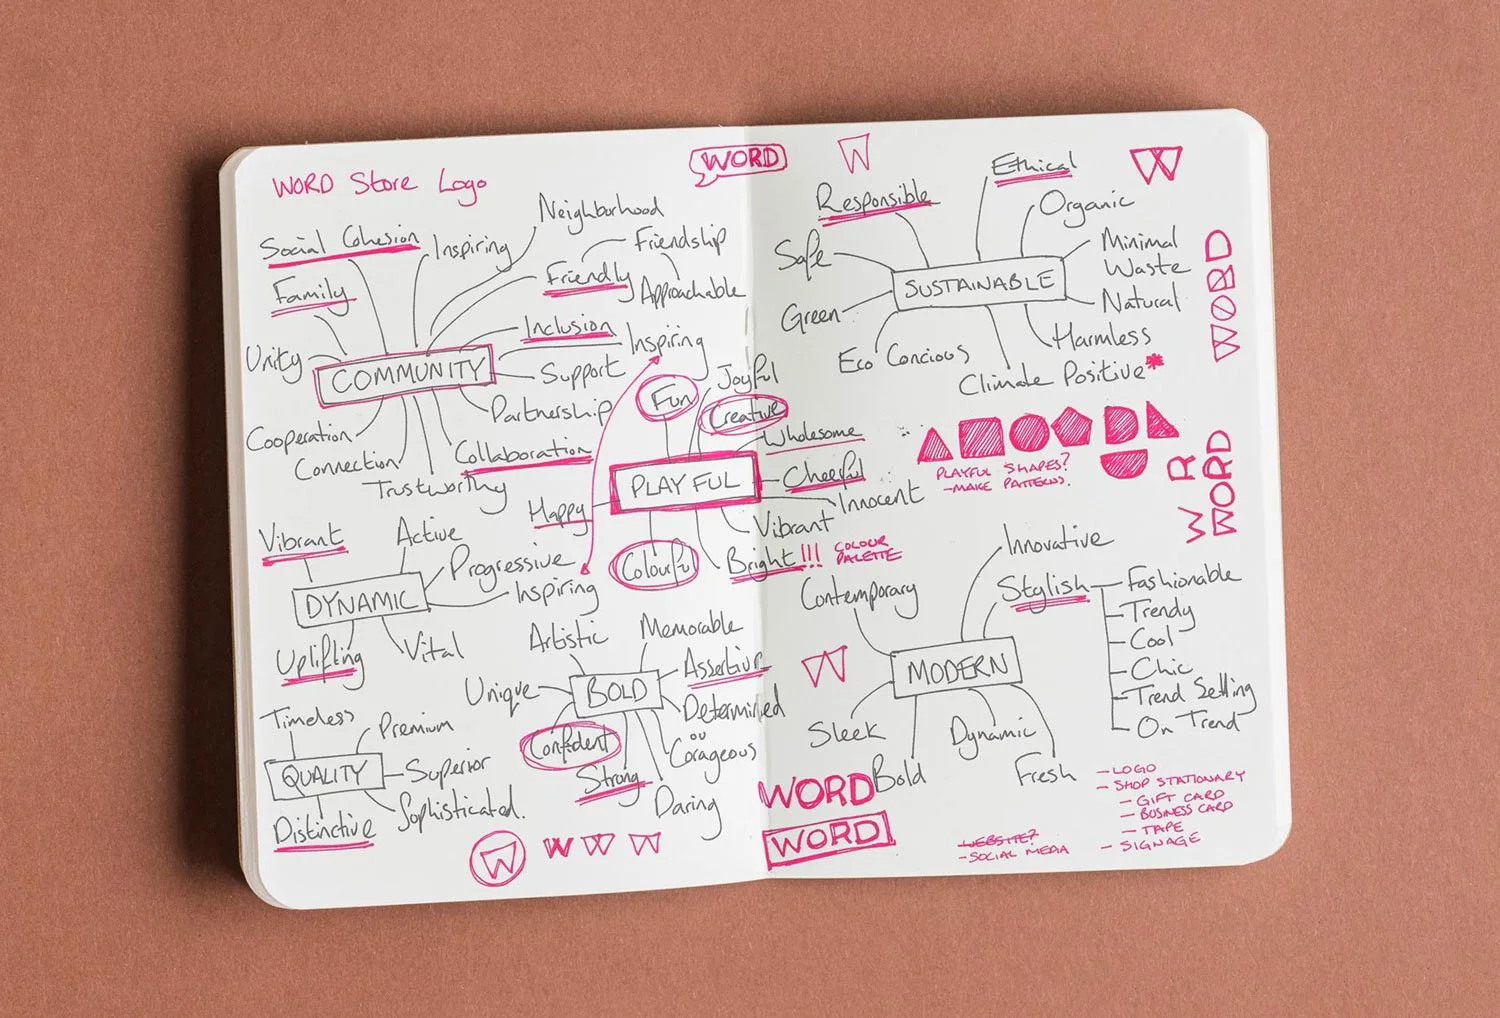 WORD Store Logo
Social Cohesion
Inspiring
Neighborhood
Friendship
Family
Friendly
Approachable
Inclusion
Inspiring
Unity
COMMUNITY
Support
Partnership
Cooperation
Connection
Collaboration
Trustworthy
Fun
Joyful
Creative
Wholesome
PLAYFUL
Cheerful
Innocent
Happy
Vibrant
Colourful
Bright!!!
COLOUR
PALETTE
Vibrant
Active
Progressive
DYNAMIC
Inspiring
Uplifting
Vital
Artistic
Memorable
Unique
BOLD
Assertive
Determined
ou
Corageous
Confident
Strong
Daring
Timeless
Premium
QUALITY
Superior
Sophisticated.
Distinctive
W
W W W
WORD
W
Ethical
W
Responsible
Organic
Safe
Minimal
Waste
SUSTAINABLE
Green
Natural
Eco Concious
Harmless
Climate Positive*
WORD
PLAYFUL SHAPES?
-MAKE PATTERNS.
W R
WORD
Innovative
Contemporary
Stylish
Fashionable
Trendy
Cool
Chic
Trend Setting
On Trend
W
MODERN
Sleek
Dynamic
Bold
Fresh
WORD
WORD
WEBSITE?
- SOCIAL MEDIA
- LOGO
- SHOP STATIONARY
- GIFT CARD
- BUSINESS CARD
- TAPE
- SIGNAGE